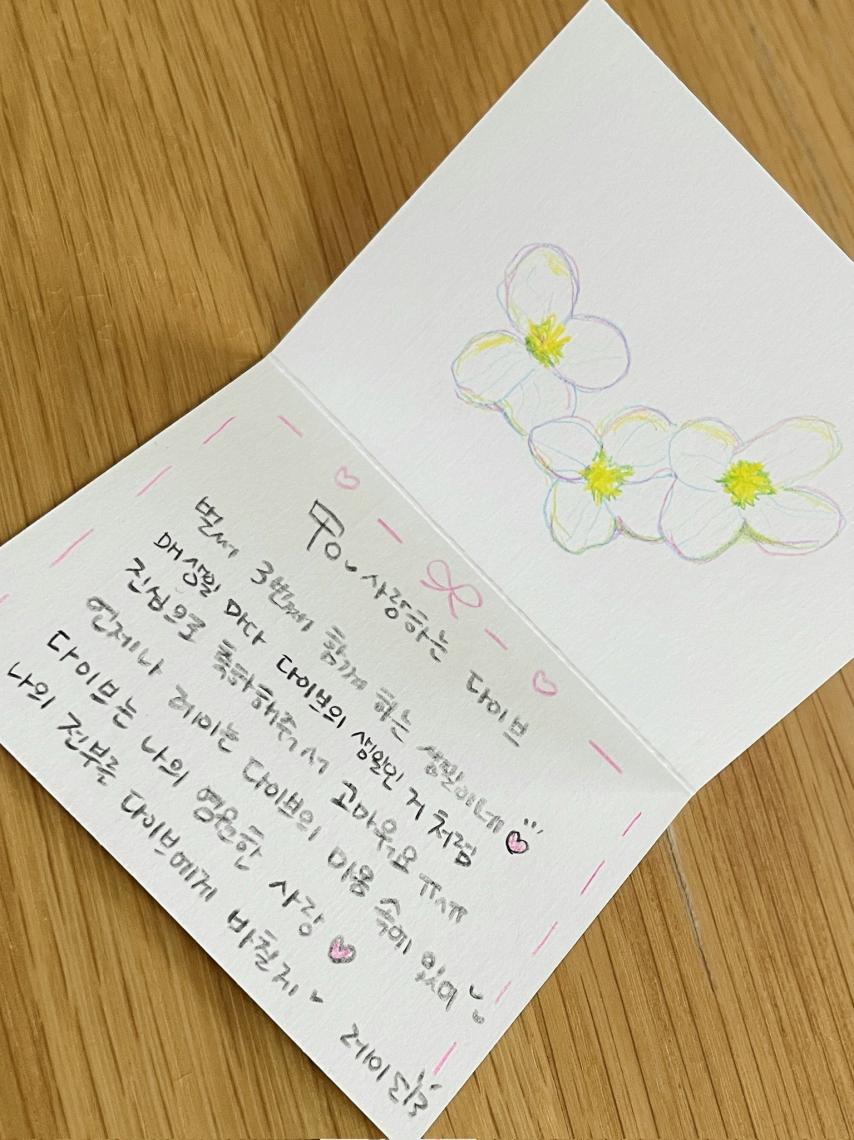 To. 사랑하는 다이브
벌써 3번째 함께 하는 생일이네
매생일 마다 다이브의 생일인 거 처럼
진심으로 축하해줘서 고마워요 ㅠㅅㅠ
언제나 레이는 다이브의 마음 속에 있어
다이브는 나의 영원한 사랑
나의 전부를 다이브에게 바칠게
레이